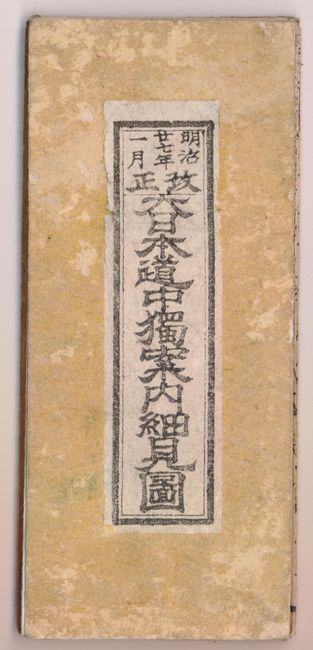 明治
廿七年
一月
改正
大日本道中獨案内細見圖